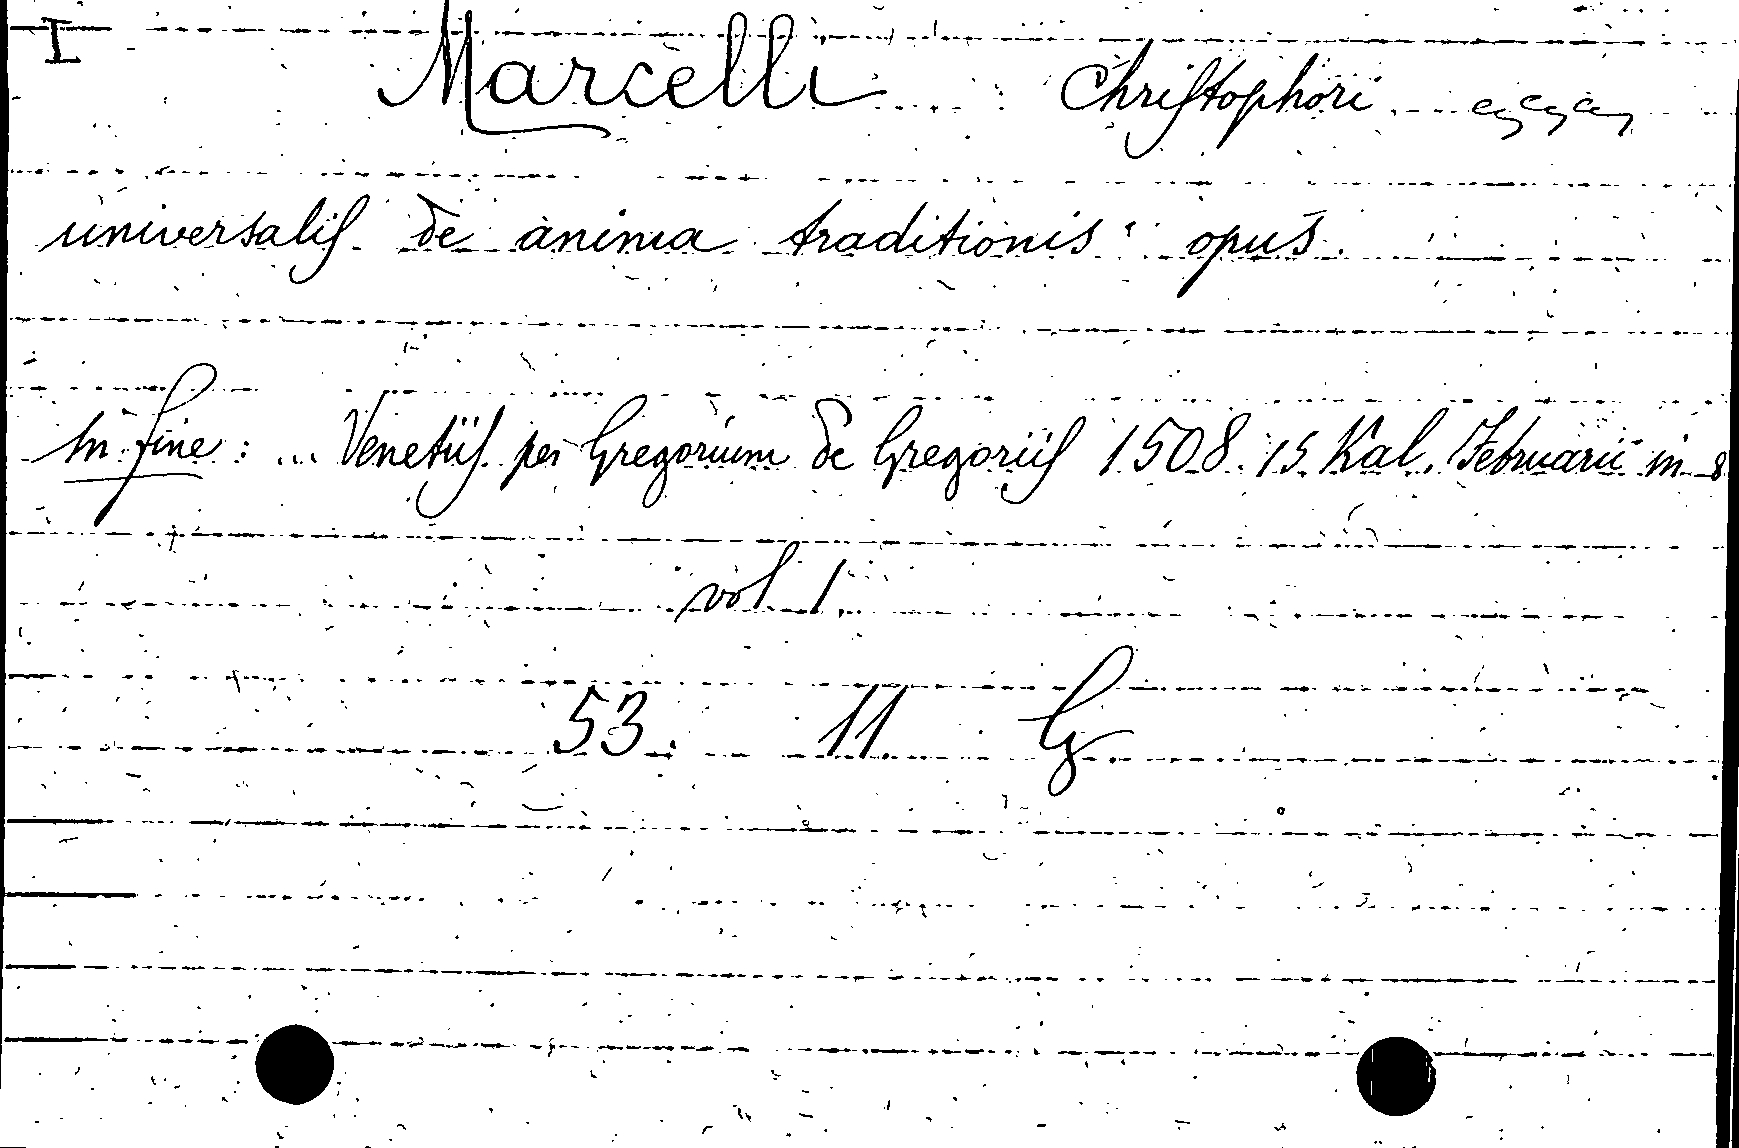 I Marcelli Christophori
universalis de anima traditionis opus.
In fine: ... Venetiis per Gregorium de Gregoriis 1508. 15 Kal. Februarii in 8
vol 1.
53. 11. G